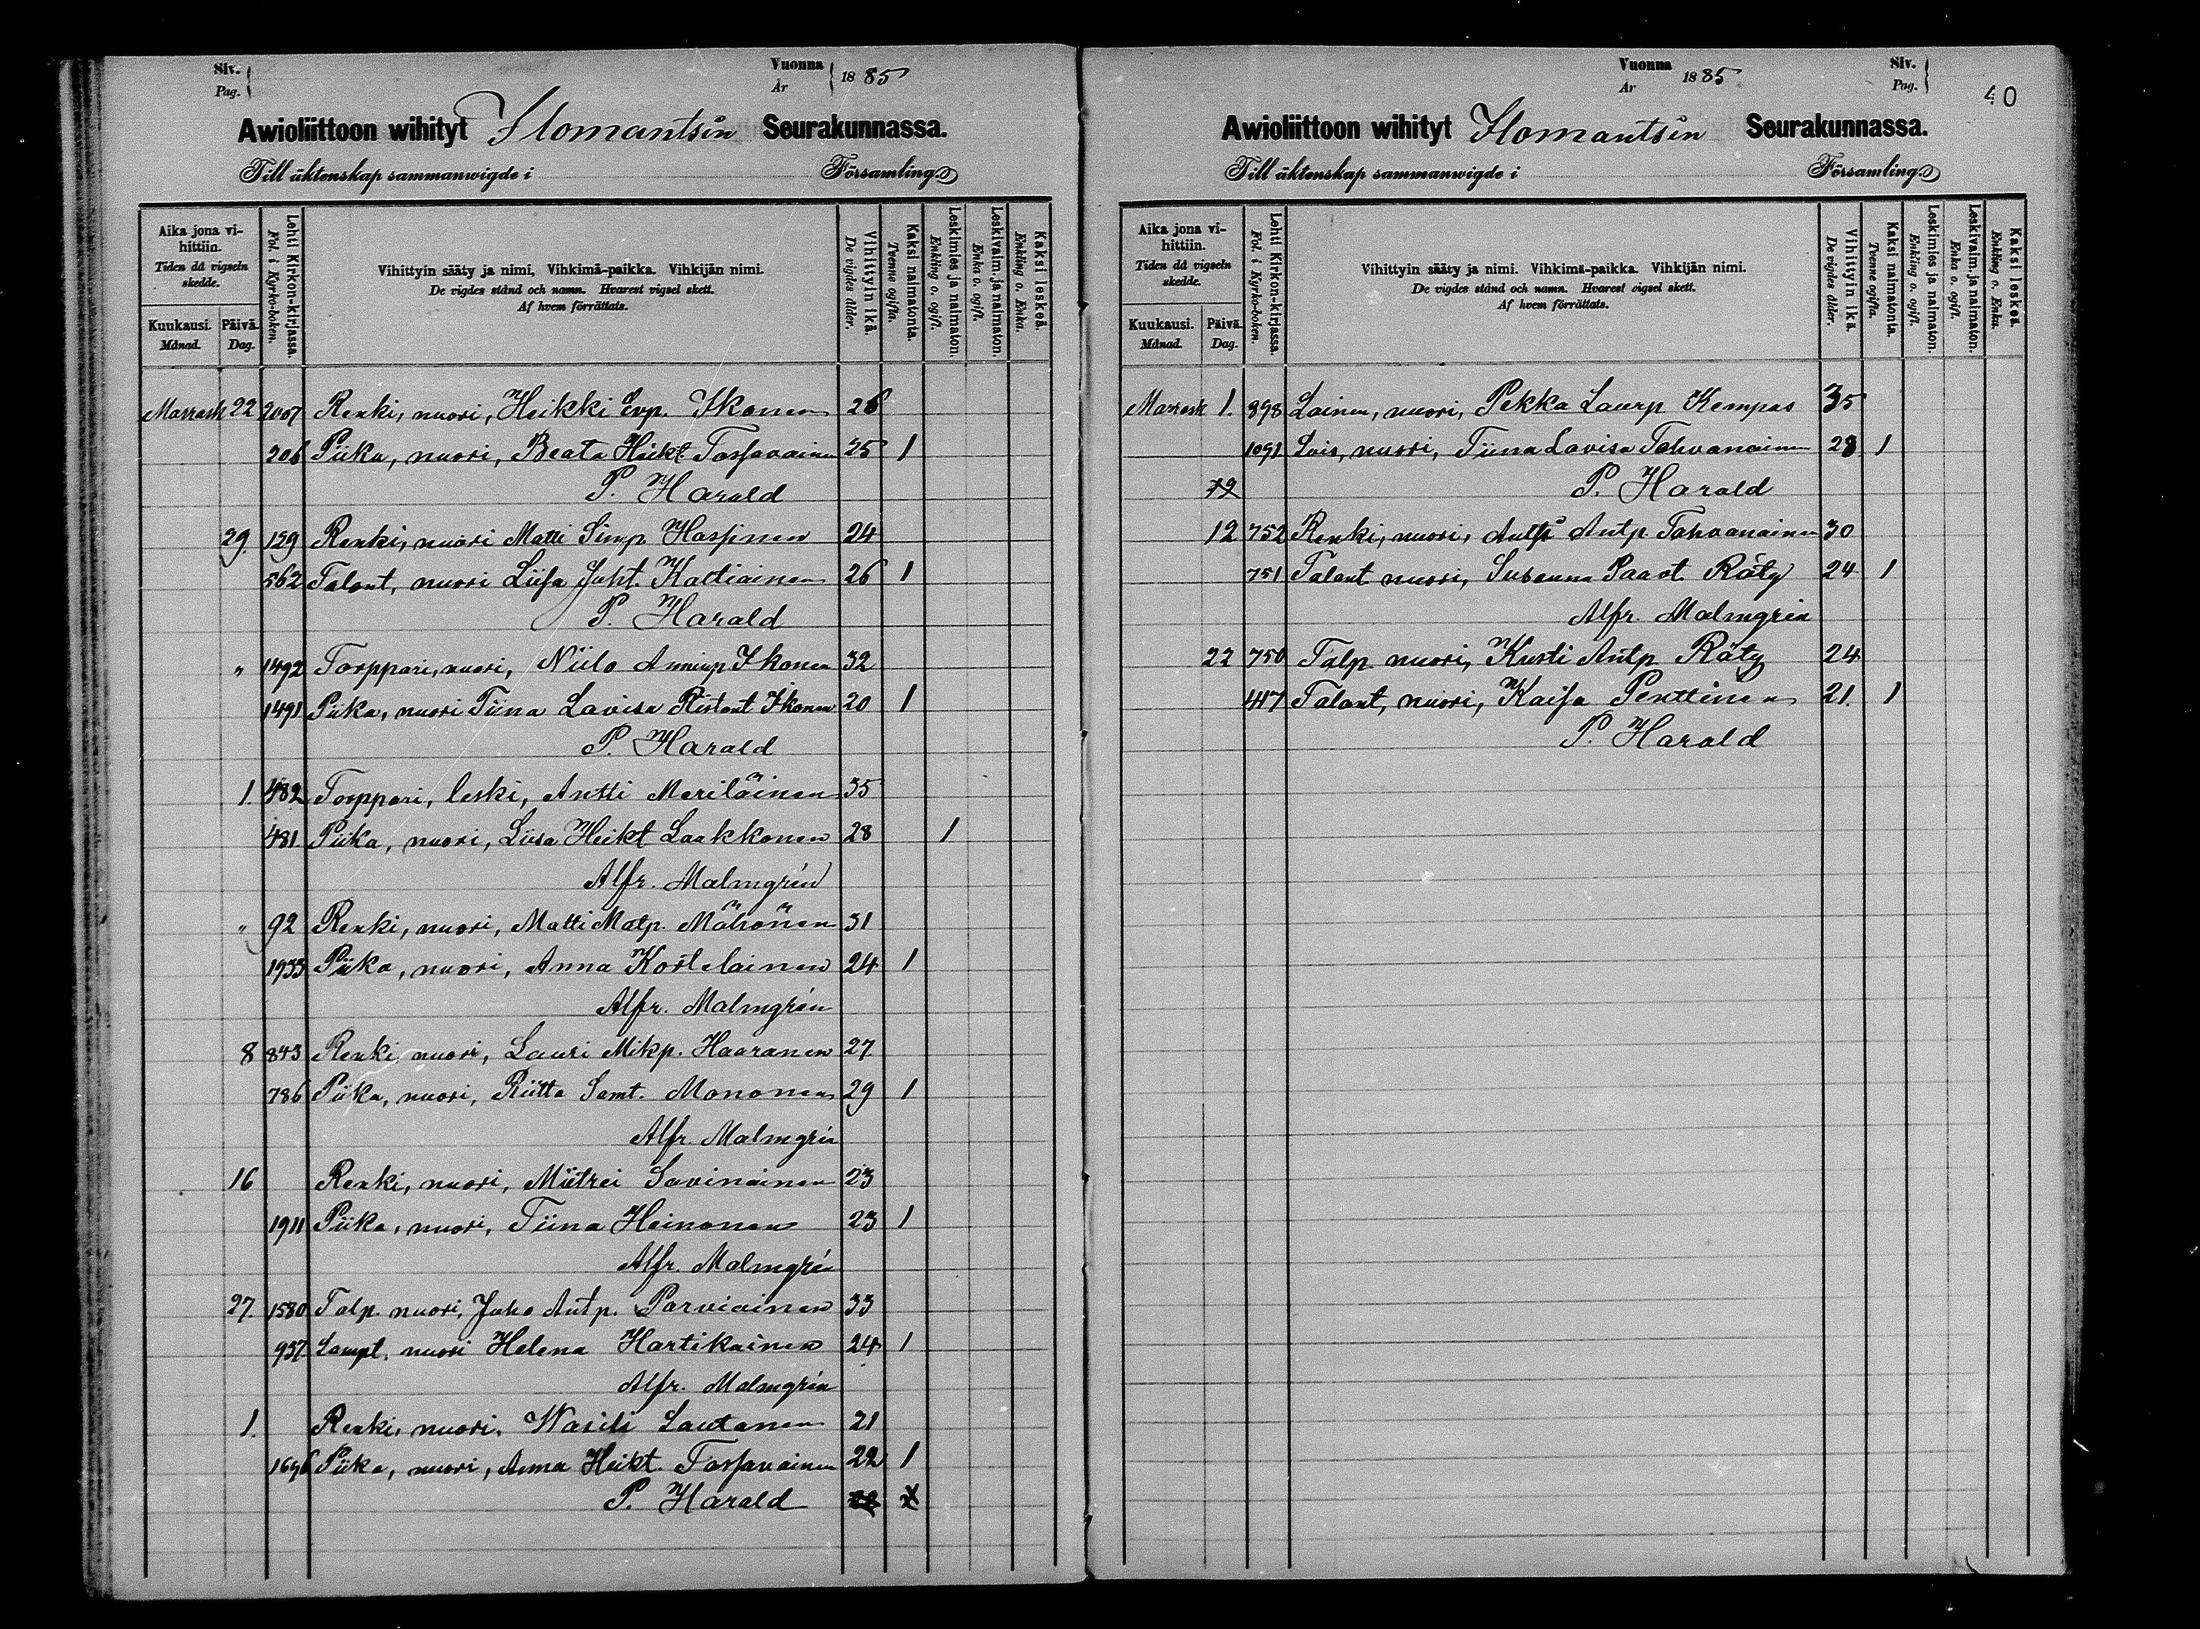 Siv.
Pag.
Vuonna
År
1885
Awioliittoon wihityt Ilomantsin Seurakunnassa.
Till äktenskap sammanwigde i Församling.
Aika jona vihittiin.
Tiden då vigseln skedde.
Kuukausi.
Månad.
Päivä.
Dag.
Lehti Kirkon-kirjassa.
Fol. i Kyrko-boken.
Vihittyin sääty ja nimi, Vihkimä-paikka. Vihkijän nimi.
De vigdes stånd och namn. Hvarest vigsel skett.
Af hvem förrättats.
Vihittyin ikä.
De vigdes ålder.
Kaksi naimatonta.
Tvenne ogifta.
Leskimies ja naimaton.
Enkling o. ogift.
Leskivaim. ja naimaton.
Enka o. ogift.
Kaksi leskeä.
Enkling o. Enka.
Marrask 22 2007 Renki, nuori, Heikki Evp. Ikonen 26
206 Piika, nuori, Beata Heikt Tarfavainen 25 1
P. Harald
29. 159 Renki, nuori Matti Simp Haspinen 24
562 Talont, nuori Liisa Juht. Kaltiainen 26 1
P. Harald
" 1492 Torppari, nuori, Niilo Ikonen 32
1491 Piika, nuori Tiina Lavisa Ristont Ikonen 20 1
P. Harald
1. 482 Torppari, leski, Antti Meriläinen 35
481 Piika, nuori, Liisa Heikt Laakkonen 28 1
Alfr. Malmgrén
" 92 Renki, nuori, Matti Matp. Mähönen 31
1933 Piika, nuori, Anna Kortelainen 24 1
Alfr. Malmgrén
8 843 Renki nuori, Lauri Mikp. Haaranen 27
786 Piika, nuori, Riitta Samt. Mononen 29 1
Alfr. Malmgrén
16 Renki, nuori, Miitrei Savinainen 23
1911 Piika, nuori, Tiina Heinonen 23 1
Alfr. Malmgrén
27. 1580 Talp. nuori, Juho Antp. Parviainen 33
937 Lampt. nuori Helena Hartikainen 24 1
Alfr. Malmgrén
1. Renki, nuori, Wasili Lautanen 21
1696 Piika, nuori, Anna Heikt. Tarfavainen 22 1
P. Harald
Vuonna
År
1885
Siv.
Pag.
40
Awioliittoon wihityt Ilomantsin Seurakunnassa.
Till äktenskap sammanwigde i Församling.
Aika jona vihittiin.
Tiden då vigseln skedde.
Kuukausi.
Månad.
Päivä.
Dag.
Lehti Kirkon-kirjassa.
Fol. i Kyrko-boken.
Vihittyin sääty ja nimi. Vihkimä-paikka. Vihkijän nimi.
De vigdes stånd och namn. Hvarest vigsel skett.
Af hvem förrättats.
Vihittyin ikä.
De vigdes ålder.
Kaksi naimatonta.
Tvenne ogifta.
Leskimies ja naimaton.
Enkling o. ogift.
Leskivaim. ja naimaton.
Enka o. ogift.
Kaksi leskeä.
Enkling o. Enka.
Marrask 1. 898 Loinen, nuori, Pekka Laurp Kempas 35
1091 Lois, nuori, Tiina Lovisa Tahvanainen 28 1
P. Harald
12 752 Renki, nuori, Antti Antp Tahvanainen 30
751 Talont nuori, Susanna Paavt Räty 24 1
Alfr. Malmgrén
22 750 Talp nuori, Kusti Antp Räty 24
417 Talont, nuori, Kaisa Penttinen 21. 1
P. Harald